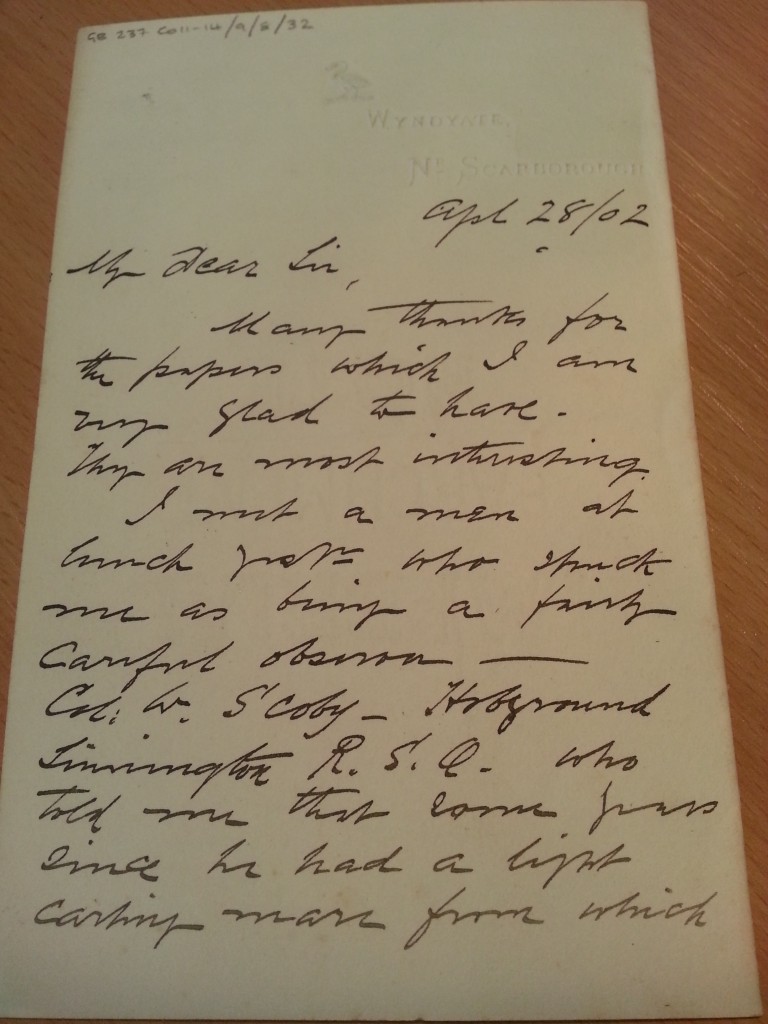 GB 237 Coll-14/9/8/32
WYNDYATE,
NR SCARBOROUGH
Apl 28/02
My Dear Sir,
Many thanks for
the papers which I am
very glad to have.
They are most interesting.
I met a man at
lunch yestr who struck
me as being a fairly
careful observer —
Col: W. Scoby - Hobground
Sinnington R.S.O. who
told me that some years
since he had a light
carting mare from which